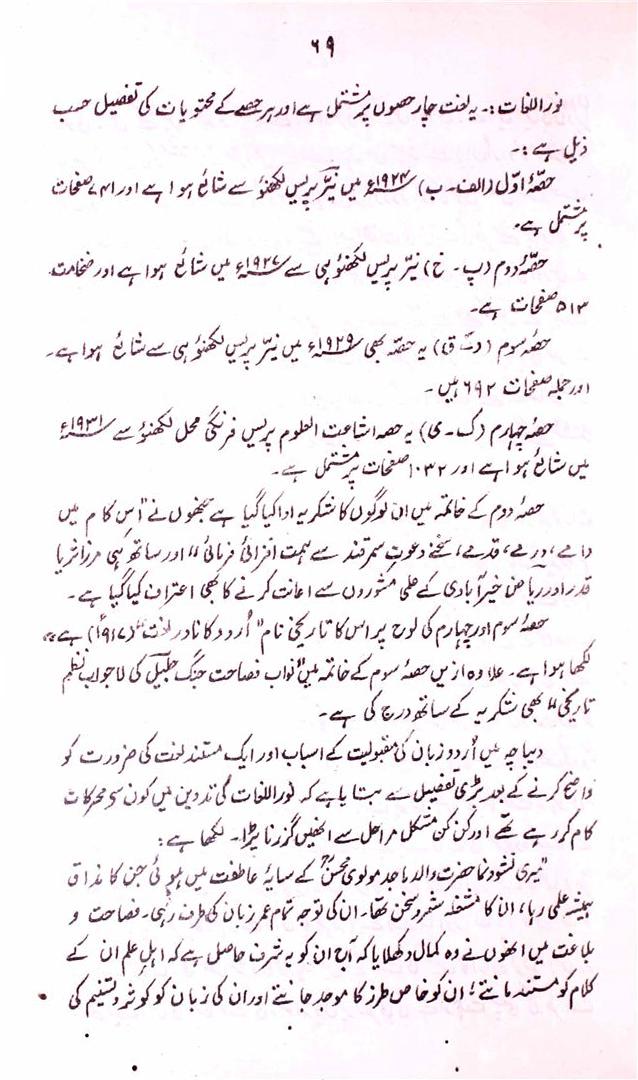 ۶۹
نوراللغات:۔ یہ لغت چار حصوں پر مشتمل ہے اور ہر حصے کے محتویات کی تفصیل حسب
ذیل ہے:۔
حصّۂ اوّل (الف۔ ب) ۱۹۲۴ء میں نیّر پریس لکھنؤ سے شائع ہوا ہے اور ۷۴۱ صفحات
پر مشتمل ہے۔
حصّۂ دوم (پ۔ خ) نیّر پریس لکھنؤ ہی سے ۱۹۲۷ء میں شائع ہوا ہے اور ضخامت
۵۱۳ صفحات ہے۔
حصّۂ سوم (د تا ق) یہ حصّہ بھی ۱۹۲۹ء میں نیّر پریس لکھنؤ ہی سے شائع ہوا ہے۔
اور جملہ صفحات ۶۹۲ ہیں۔
حصّۂ چہارم (ک۔ ی) یہ حصہ اشاعت العلوم پریس فرنگی محل لکھنؤ سے ۱۹۳۱ء
میں شائع ہوا ہے اور ۱۰۳۲ صفحات پر مشتمل ہے۔
حصۂ دوم کے خاتمہ میں ان لوگوں کا شکریہ ادا کیا گیا ہے جنھوں نے "اس کام میں
دامے، درمے، قدمے، سخنے دعوتِ سمرقند سے ہمت افزائی فرمائی" اور ساتھ ہی مرزا ثریا
قدر اور ریاض خیرآبادی کے علمی مشوروں سے اعانت کرنے کا بھی اعتراف کیا گیا ہے۔
حصۂ سوم اور چہارم کی لوح پر اس کا تاریخی نام "اُردو کا نادر لغت" (۱۹۱۷ء) ہے
لکھا ہوا ہے۔ علاوہ ازیں حصۂ سوم کے خاتمہ میں "نواب فصاحت جنگ جلیل کی لاجواب نظم
تاریخی" بھی شکریہ کے ساتھ درج کی ہے۔
دیباچہ میں اُردو زبان کی مقبولیت کے اسباب اور ایک مستند لغت کی ضرورت کو
واضح کرنے کے بعد بڑی تفصیل سے بتایا ہے کہ نوراللغات کی تدوین میں کون سی محرکات
کام کر رہے تھے اور کن کن مشکل مراحل سے انھیں گزرنا پڑا۔ لکھا ہے:
"میری نشوونما حضرت والد ماجد مولوی محسنؔ کے سایۂ عاطفت میں ہوئی جن کا مذاق
ہمیشہ علمی رہا، ان کا مشغلہ شعر و سخن تھا۔ ان کی توجہ تمام عمر زبان کی طرف رہی۔ فصاحت و
بلاغت میں انھوں نے وہ کمال دکھلایا کہ آج ان کو یہ شرف حاصل ہے کہ اہلِ علم ان کے
کلام کو مستند مانتے! ان کو خاص طرز کا موجد جانتے اور ان کی زبان کو کوثر و تسنیم کی